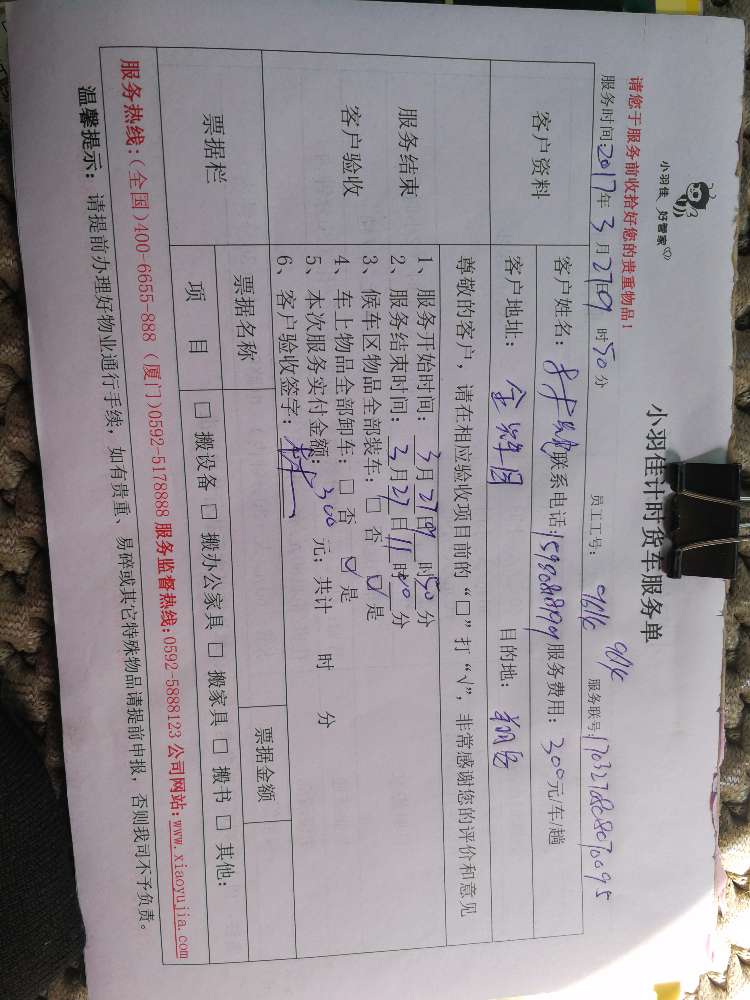 小羽佳 好管家
小羽佳计时货车服务单
请您于服务前收拾好您的贵重物品！
服务时间:2017年3月27日9时50分 员工工号: 服务联号:
客户资料
客户姓名: 联系电话: 服务费用:300元/车/趟
客户地址: 目的地:
服务结束
客户验收
尊敬的客户，请在相应验收项目前的“□”打“√”，非常感谢您的评价和意见
1、服务开始时间:3月27日9时50分
2、服务结束时间:3月27日11时00分
3、候车区物品全部装车:□否☑是
4、车上物品全部卸车:□否☑是
5、本次服务实付金额:300元;共计 时 分
6、客户验收签字:
票据栏
票据名称 票据金额
项 目
□搬设备□搬办公家具□搬家具□搬书□其他:
服务热线:(全国)400-6655-888 (厦门)0592-5178888 服务监督热线:0592-5888123 公司网站:www.xiaoyujia.com
温馨提示: 请提前办理好物业通行手续，如有贵重、易碎或其它特殊物品请提前申报，否则我司不予负责。